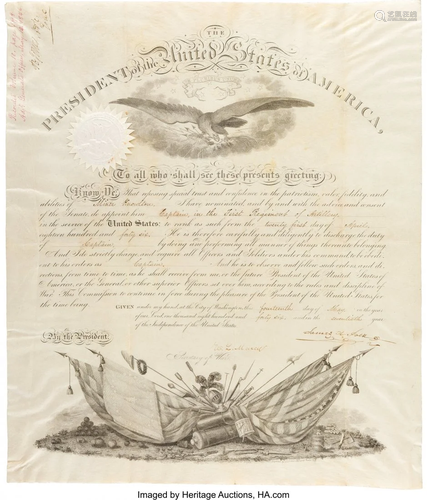 THE
PRESIDENT of the United States of AMERICA,
To all who shall see these presents greeting:
Know Ye, That reposing special trust and confidence in the patriotism, valor, fidelity and
abilities of I have nominated, and by and with the advice and consent
of the Senate do appoint him Captain in the First Regiment of Artillery
in the service of the United States: to rank as such from the twenty first day of eigh
teen hundred and forty six. He is therefore carefully and diligently to discharge the duty
of Captain by doing and performing all manner of things thereunto belonging.
And I do strictly charge and require all Officers and Soldiers under his command to be obedi-
ent to his orders as Captain. And he is to observe and follow such orders, and di-
rections, from time to time, as he shall receive from me, or the future President of the United States of
America, or the General or other superior Officers set over him, according to the rules and discipline of
War. This Commission to continue in force during the pleasure of the President of the United States, for
the time being.
GIVEN under my hand at the City of Washington this day of in the year
of our Lord one thousand eight hundred and forty six and in the year
of the Independence of the United States.
By the President,
James K. Polk
Secretary of War
Imaged by Heritage Auctions, HA.com